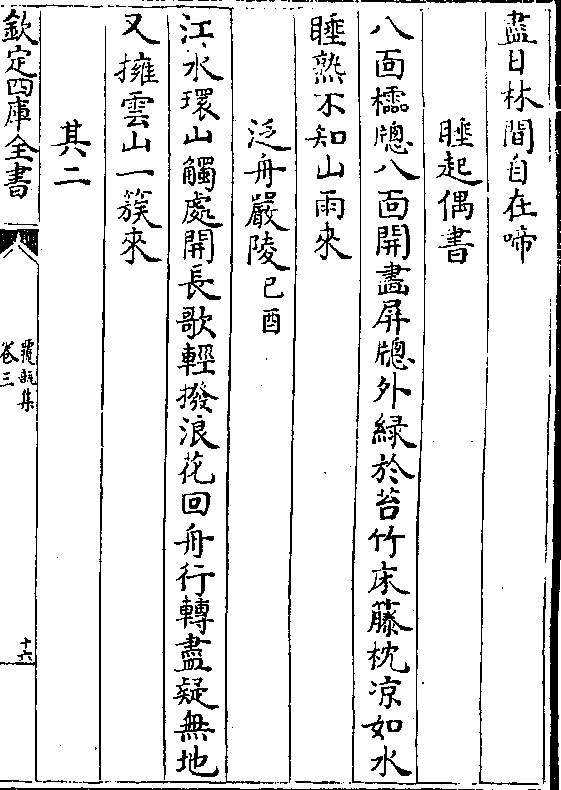 盡日林間自在啼
睡起偶書
八面櫺牕八面開畵屏牕外緑於苔竹床藤枕凉如水
睡熟不知山雨來
泛舟嚴陵己酉
江水環山觸處開長歌輕撥浪花回舟行轉盡疑無地
又擁雲山一簇來
其二
欽定四庫全書
卷三
十六